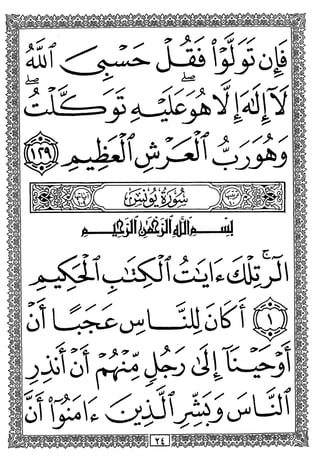 فَإِن تَوَلَّوْا۟ فَقُلْ حَسْبِىَ ٱللَّهُ
لَآ إِلَٰهَ إِلَّا هُوَ ۖ عَلَيْهِ تَوَكَّلْتُ ۖ
وَهُوَ رَبُّ ٱلْعَرْشِ ٱلْعَظِيمِ ١٢٩
سُورَةُ يُونُسَ
بِسْمِ ٱللَّهِ ٱلرَّحْمَٰنِ ٱلرَّحِيمِ
الٓر ۚ تِلْكَ ءَايَٰتُ ٱلْكِتَٰبِ ٱلْحَكِيمِ
١ أَكَانَ لِلنَّاسِ عَجَبًا أَنْ
أَوْحَيْنَآ إِلَىٰ رَجُلٍ مِّنْهُمْ أَنْ أَنذِرِ
ٱلنَّاسَ وَبَشِّرِ ٱلَّذِينَ ءَامَنُوٓا۟ أَنَّ
٢٤